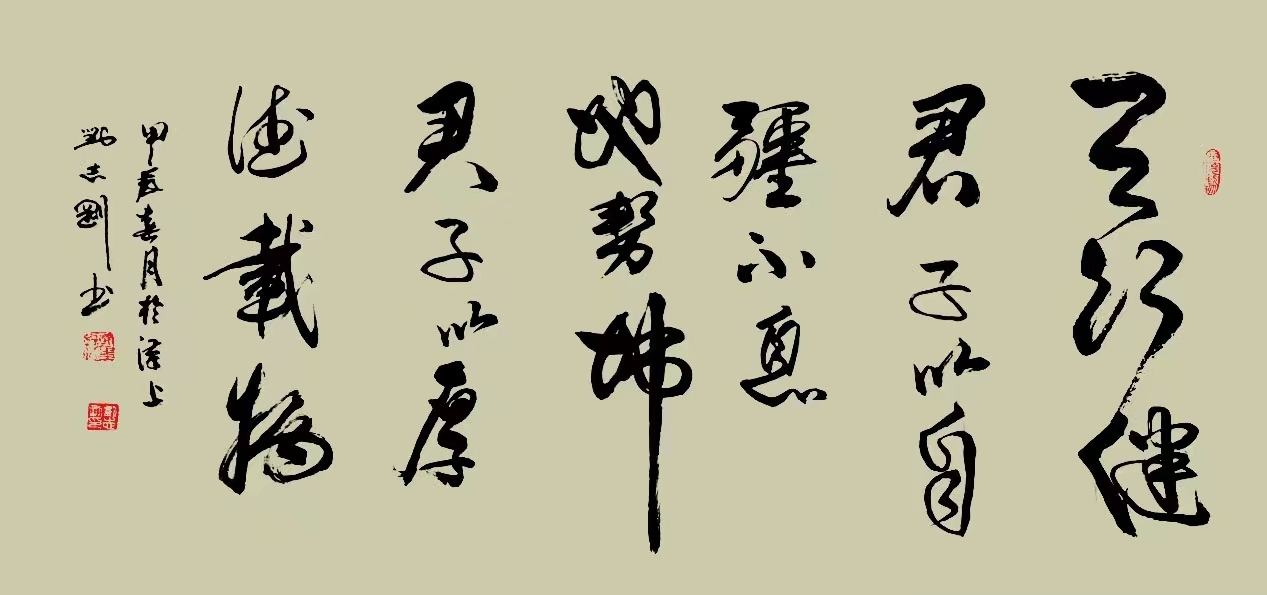 天行健
君子以自
疆不息
地勢坤
君子以厚
德載物
甲辰春月於上
志剛书